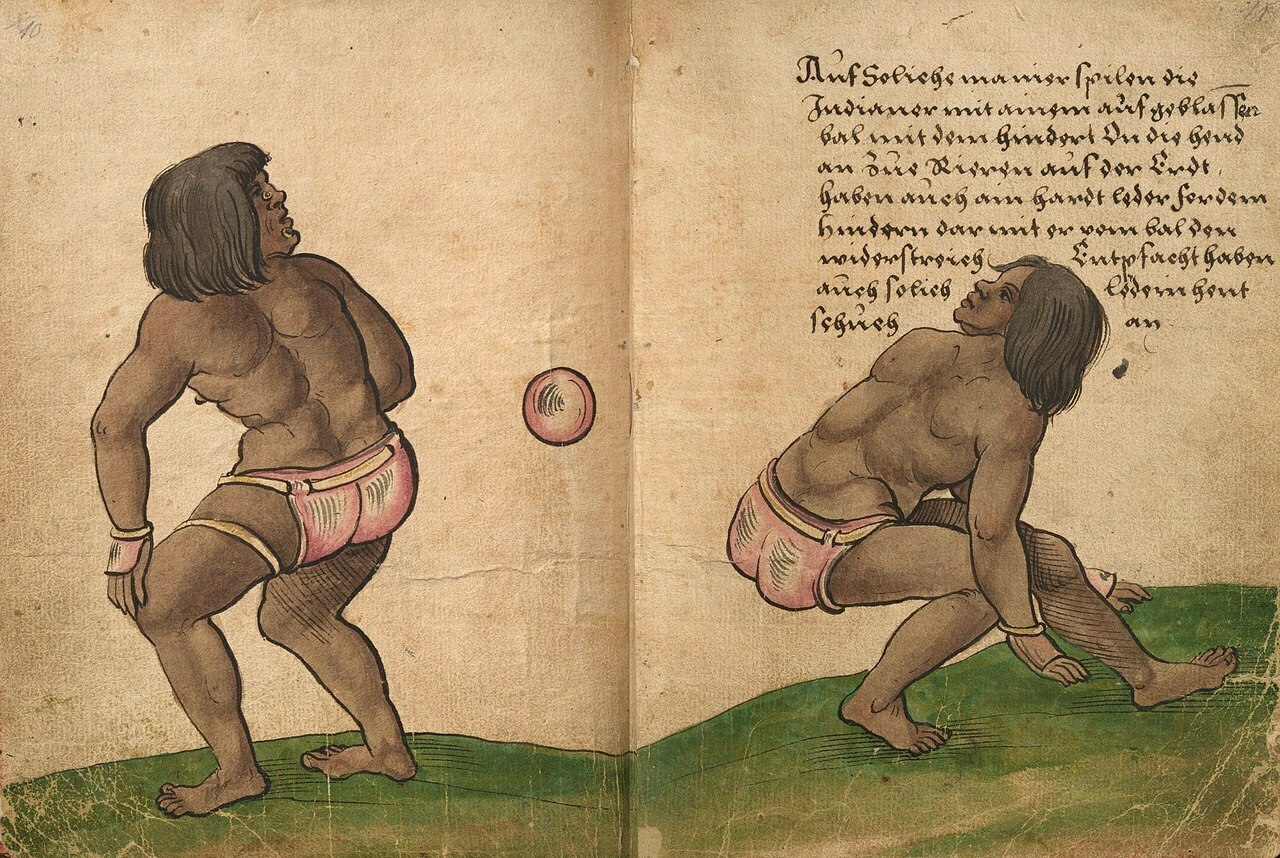 10
Auf Soliche manier spilen die
Indianer mit ainem auf geblassen
bal mit dem hindert On die hend
an Zue Rieren auf der Erdt,
haben auch ain hardt leder for dem
hindern dar mit er vom bal den
widerstreich Entpfacht haben
auch solich ledern hent
schuch an